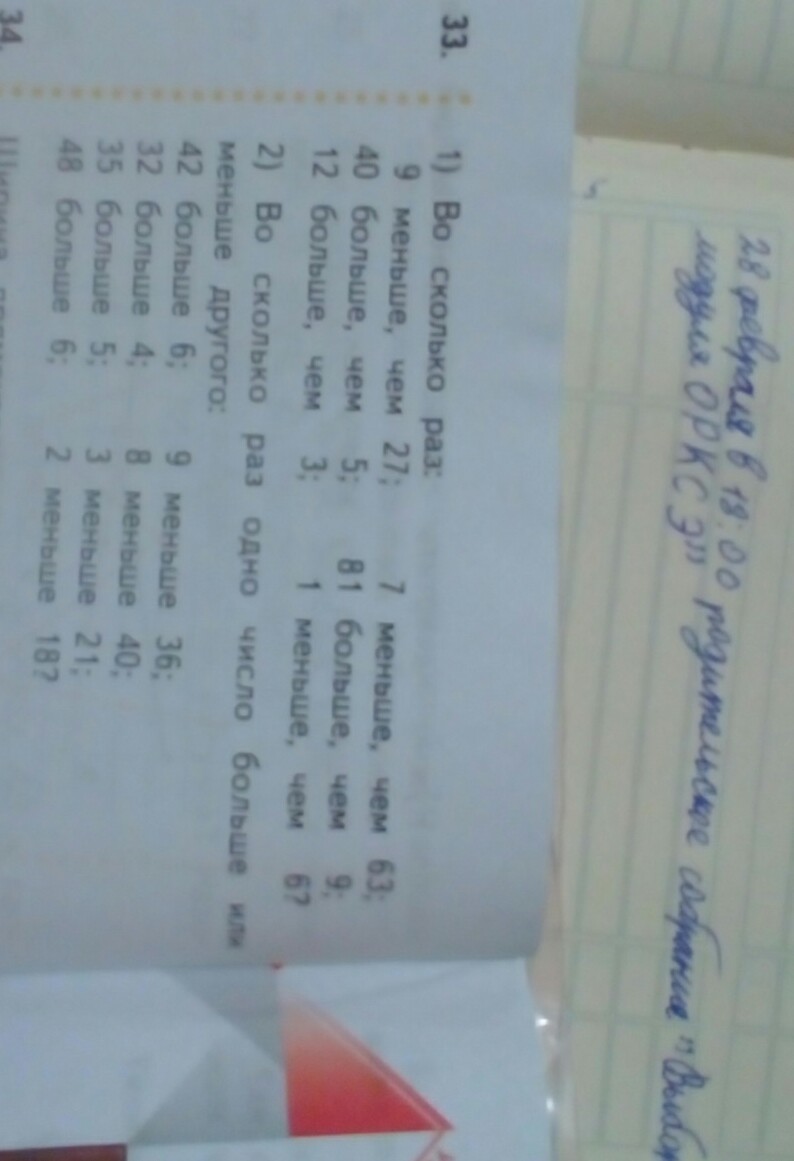 28 февраля в 18:00 родительское собрание "Выбор
модуля ОРКСЭ"
33. 1) Во сколько раз:
9 меньше, чем 27; 7 меньше, чем 63;
40 больше, чем 5; 81 больше, чем 9;
12 больше, чем 3; 1 меньше, чем 6?
2) Во сколько раз одно число больше или
меньше другого:
42 больше 6; 9 меньше 36;
32 больше 4; 8 меньше 40;
35 больше 5; 3 меньше 21;
48 больше 6; 2 меньше 18?
34.